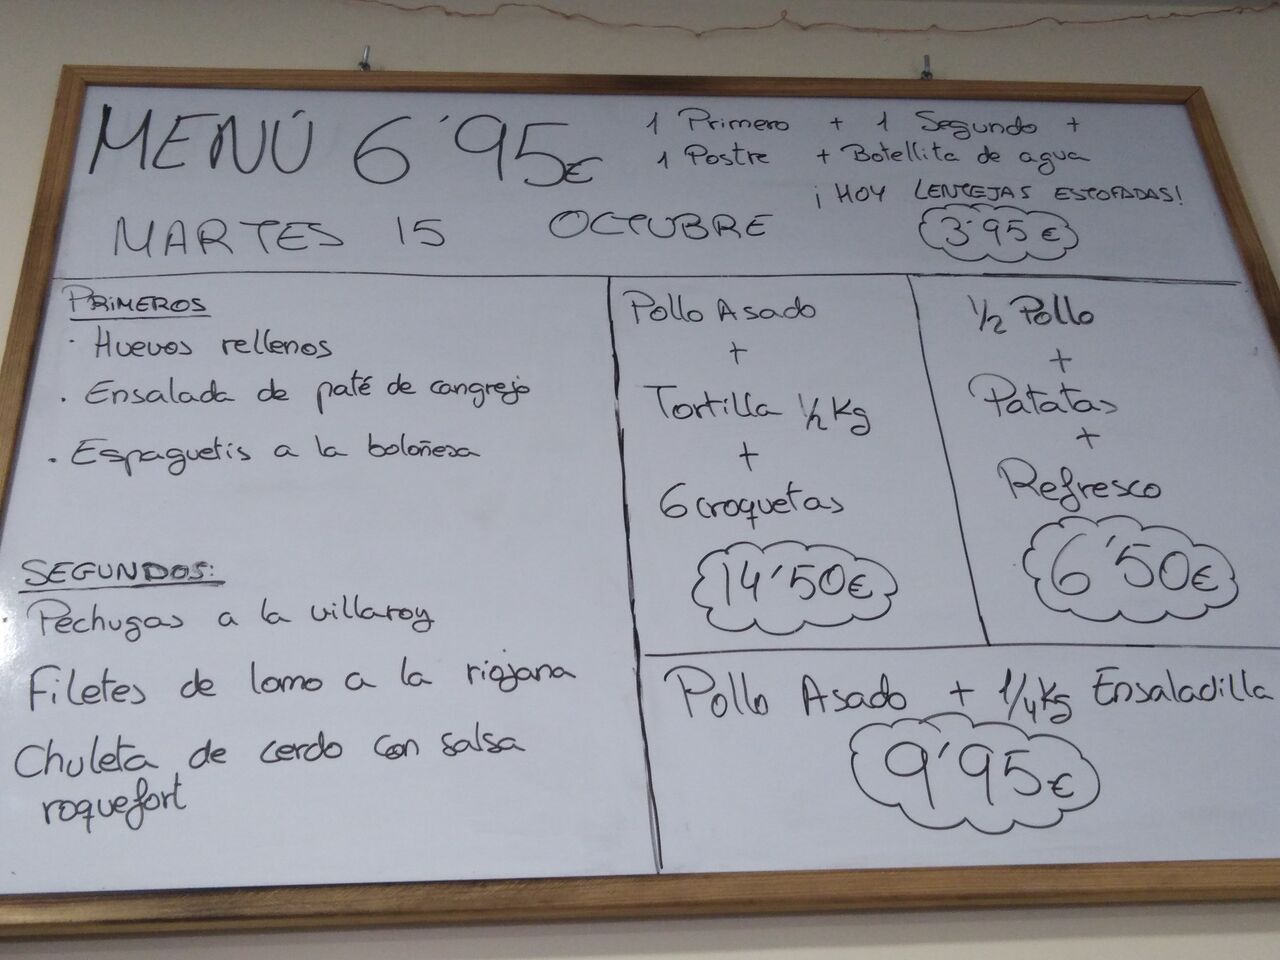 MENÚ 6'95€
1 Primero + 1 Segundo +
1 Postre + Botellita de agua
¡HOY LENTEJAS ESTOFADAS!
3'95€
MARTES 15 OCTUBRE
PRIMEROS
· Huevos rellenos
. Ensalada de paté de cangrejo
. Espaguetis a la boloñesa
SEGUNDOS:
. Pechugas a la villaroy
Filetes de lomo a la riojana
Chuleta de cerdo con salsa
roquefort
Pollo Asado
+
Tortilla 1/2 Kg
+
6 croquetas
14'50€
1/2 Pollo
+
Patatas
+
Refresco
6'50€
Pollo Asado + 1/4 Kg Ensaladilla
9'95€